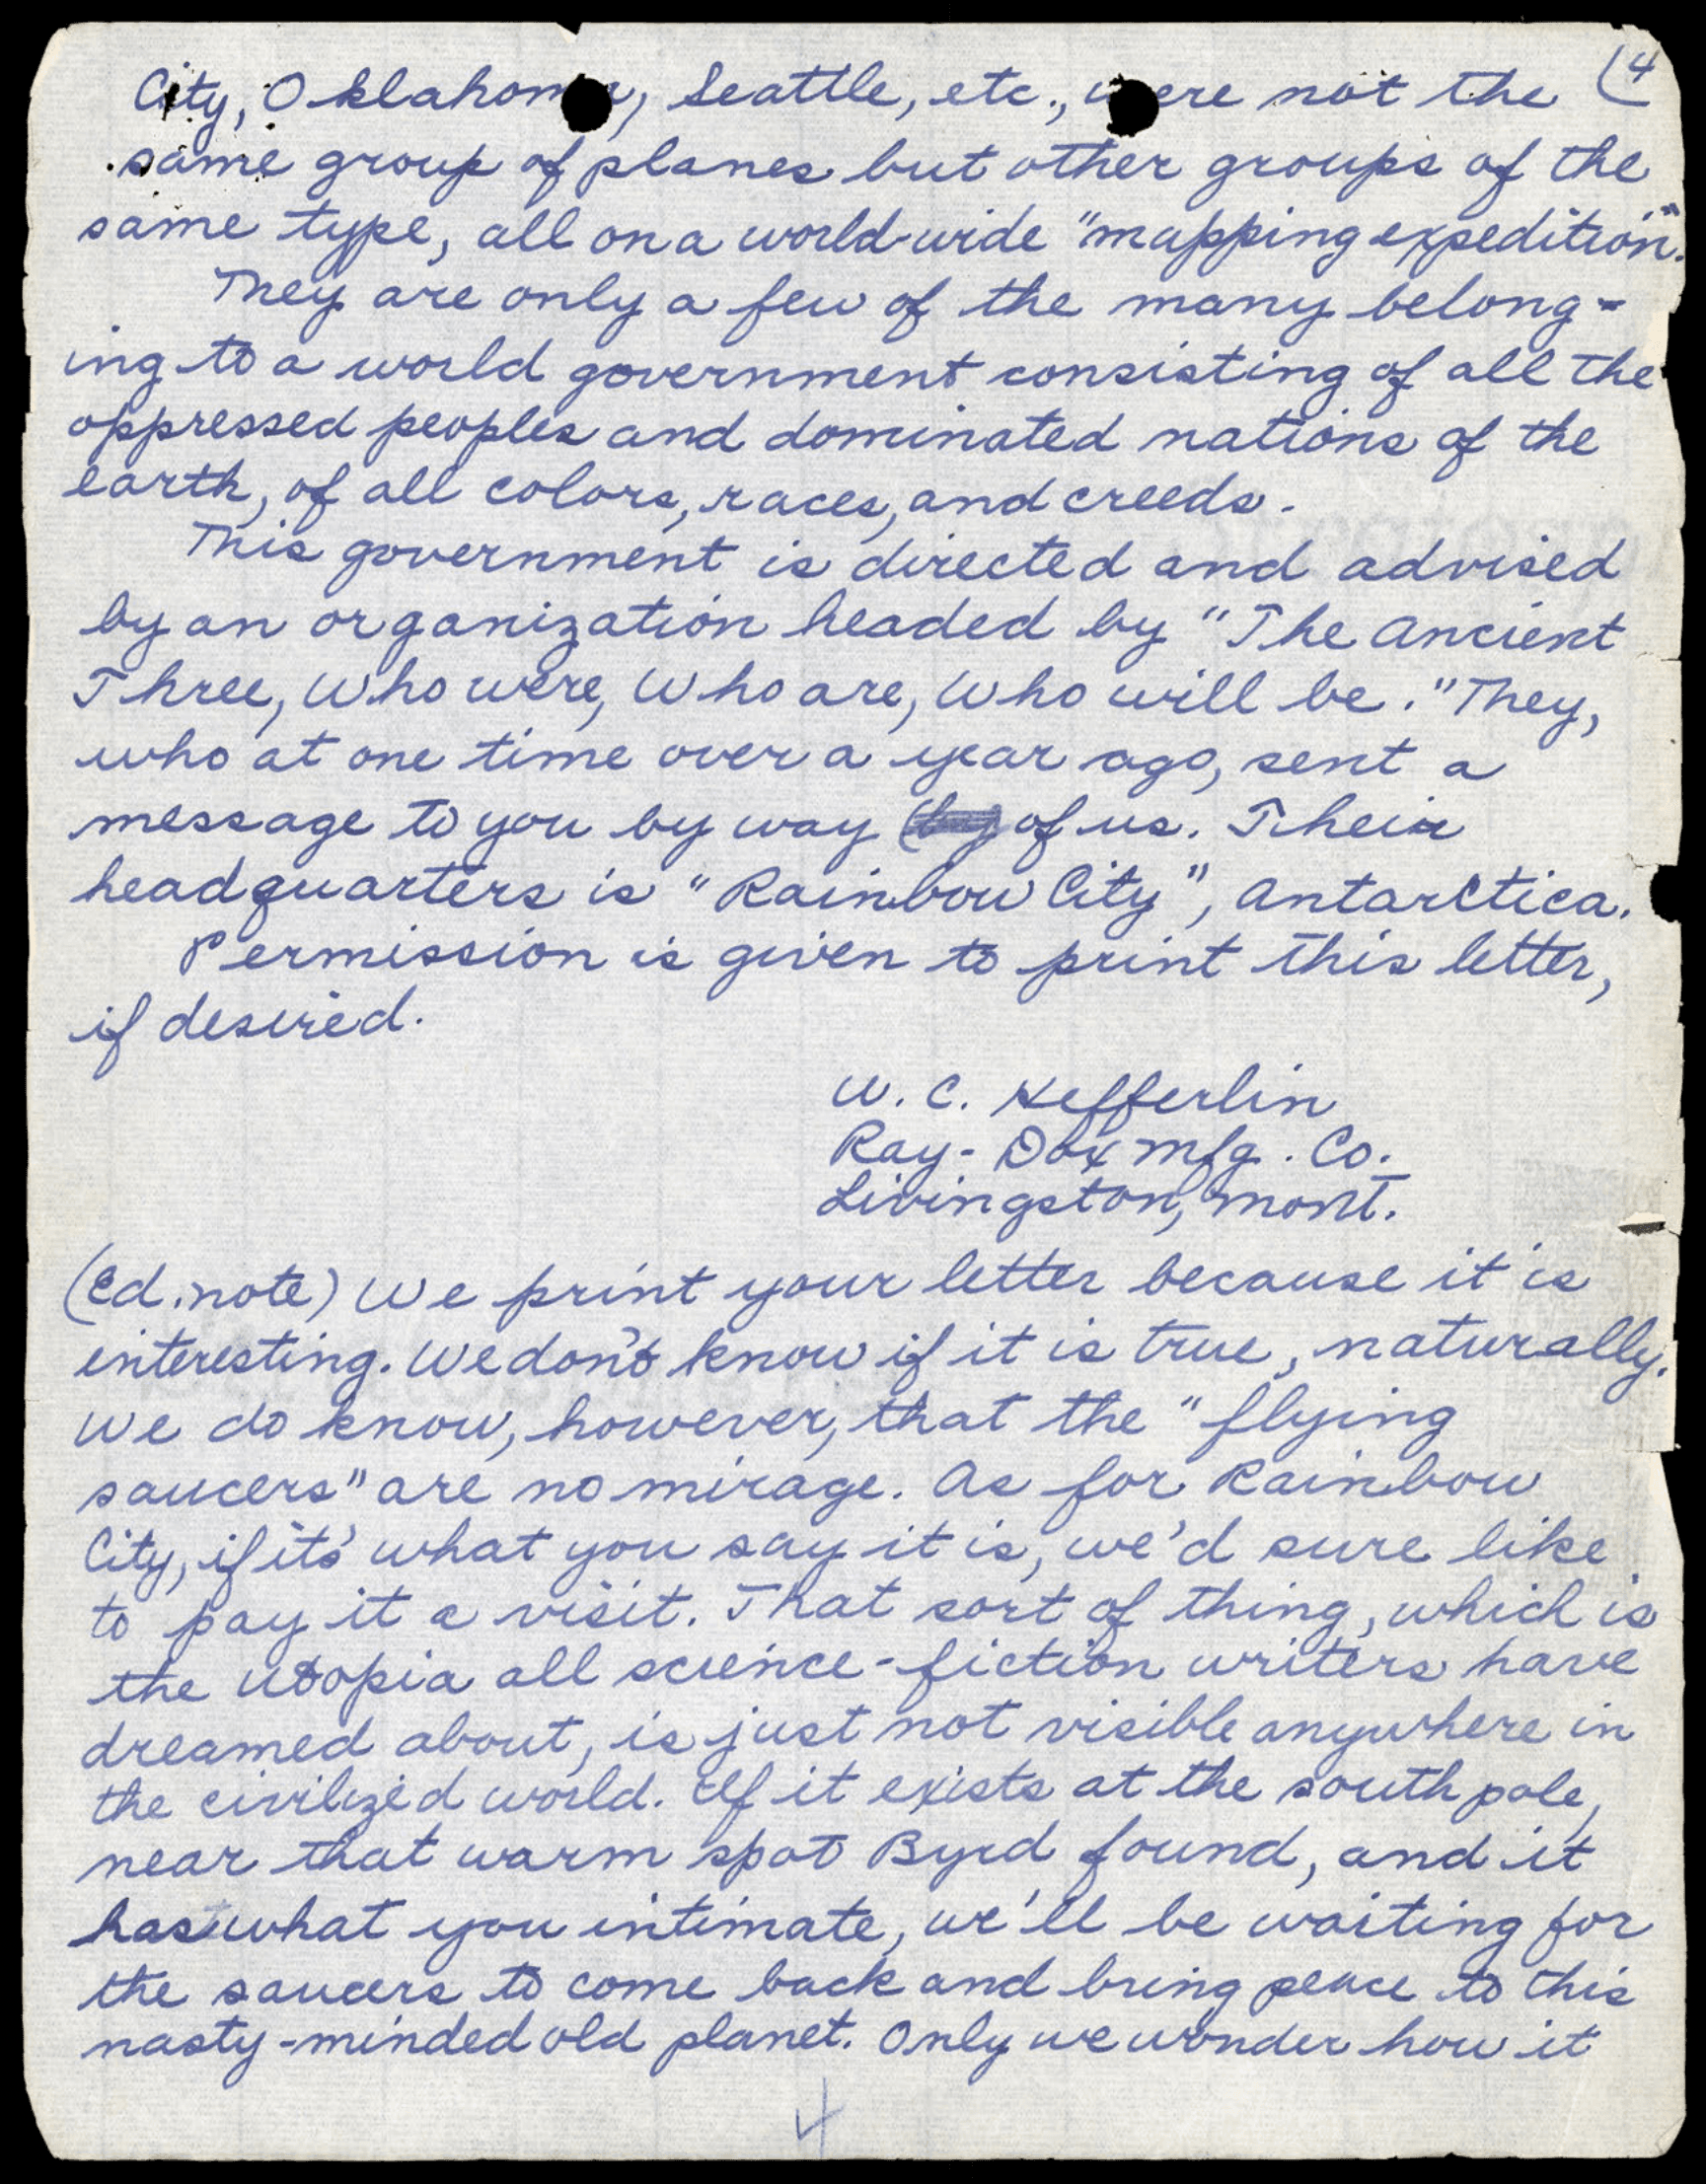 (4
City, Oklahoma, Seattle, etc., were not the
same group of planes but other groups of the
same type, all on a world-wide "mapping expedition".
They are only a few of the many belong-
ing to a world government consisting of all the
oppressed peoples and dominated nations of the
earth, of all colors, races, and creeds.
This government is directed and advised
by an organization headed by "The Ancient
Three, Who were, Who are, Who will be." They,
who at one time over a year ago, sent a
message to you by way of us. Their
headquarters is "Rainbow City", Antarctica.
Permission is given to print this letter,
if desired.
W. C. Hefferlin
Ray-Dox Mfg. Co.
Livingston, Mont.
(Ed. note) We print your letter because it is
interesting. We don't know if it is true, naturally.
We do know, however, that the "flying
saucers" are no mirage. As for Rainbow
City, if it's what you say it is, we'd sure like
to pay it a visit. That sort of thing, which is
the utopia all science-fiction writers have
dreamed about, is just not visible anywhere in
the civilized world. If it exists at the south pole,
near that warm spot Byrd found, and it
has what you intimate, we'll be waiting for
the saucers to come back and bring peace to this
nasty-minded old planet. Only we wonder how it
4